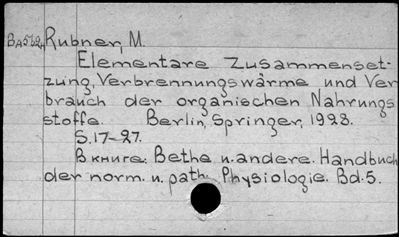 Rubner, M.
Elementare Zusammenset-
zung, Verbrennungswärme und Ver
brauch der organischen Nahrungs
stoffe. Berlin, Springer, 1928.
S. 17-27.
В книге: Bethe u. andere. Handbuch
der norm. u. path. Physiologie. Bd. 5.